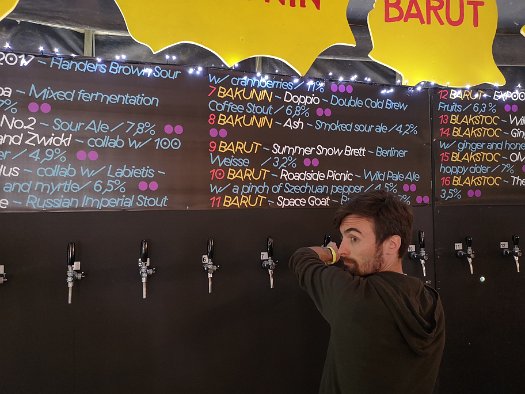 BAKUNIN
BARUT
201V - Flanders Brown Sour
- Mixed fermentation
7%
No.2 - Sour Ale / 7,8%
and Zwickl - collab w/ 100
/ 4,9%
- collab w/ Labietis -
and myrtle / 6,5%
- Russian Imperial Stout
w/ cranberries / 11%
7 BAKUNIN - Doppio - Double Cold Brew
Coffee Stout / 6,8%
8 BAKUNIN - Ash - Smoked sour ale / 4,2%
9 BARUT - Summer Snow Brett - Berliner
Weisse / 3,2%
10 BARUT - Roadside Picnic - Wild Pale Ale
w/ a pinch of Szechuan pepper / 4,5%
11 BARUT - Space Goat -
12 BARUT -
Fruits / 6,3%
13 BLAKSTOC -
14 BLAKSTOC -
w/ ginger and
15 BLAKSTOC -
hoppy cider / 7%
16 BLAKSTOC -